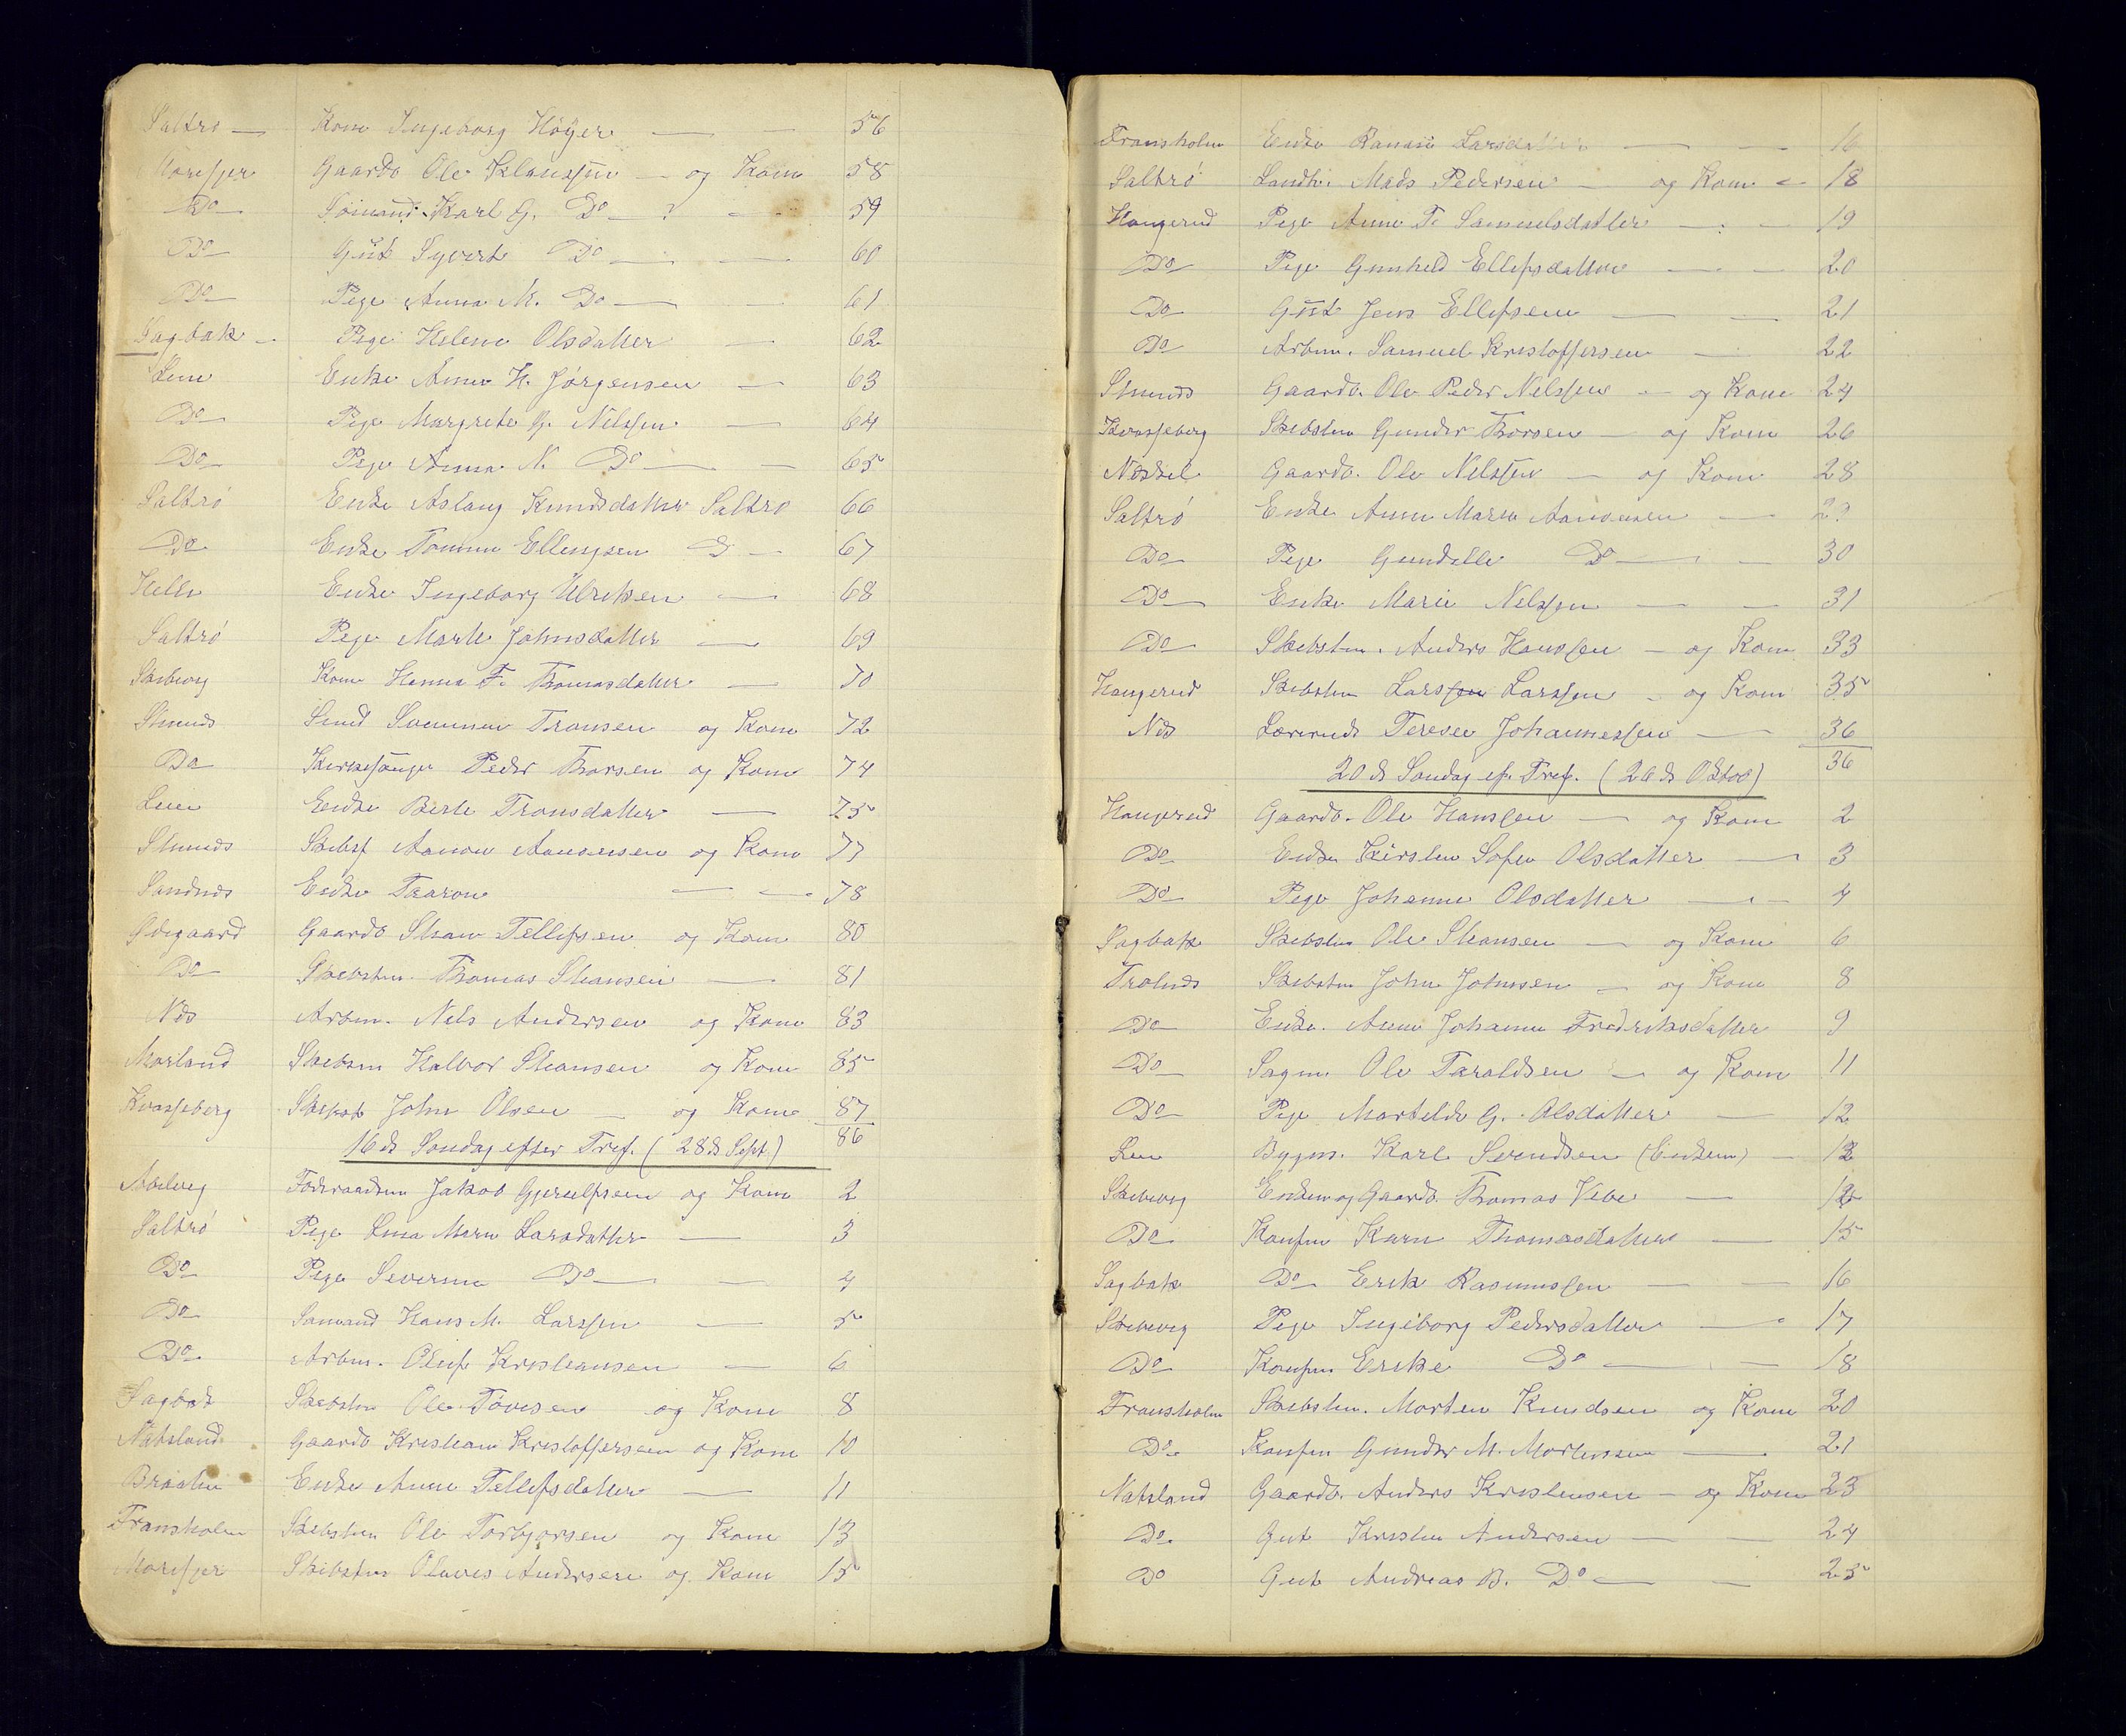 Saltrø — Kone Ingeborg Høyer — — 56
Morefjer Gaardb Ole Klaussen — og Kone 58
Do Sømand Karl G. Do — 59
Do Gut Syvert Do — — 60
Do Pige Anna M. Do — — 61
Sagbak — Pige Helene Olsdatter — 62
Lene Enke Anne H. Jørgensen — 63
Do Pige Margrete G. Nilssen — 64
Do Pige Anna N. Do — — 65
Saltrø Enke Aslaug Knudsdatter Saltrø 66
Do Enke Tomine Ellingsen D — 67
Helle Enke Ingeborg Ulriksen — 68
Saltrø Pige Marte Johnsdatter — 69
Skibvig Kone Hanna F. Thomasdatter — 70
Stuenes Smed Tronsen og Kone 72
Do Kirkesanger Peder Thorsen og Kone 74
Lene Enke Berte Tronsdatter — 75
Stuenes Skibsf Aanon Aanonsen og Kone 77
Sandnes Enke Taaron — — 78
Ødegaard Gaardb Stian Tellefsen og Kone 80
Do Skibstm. Thomas Stiansen — 81
Næs Arbm. Nils Andersen og Kone 83
Morland Skibsm Halvor Stiansen og Kone 85
Kvasseberg John Olsen — og Kone 87
16de Søndag efter Tref. (28de Sept.) 86
Føderaadsm Jakob Gjerulfsen og Kone 2
Saltrø Pige Lina Marie Larsdatter — 3
Do Pige Severine Do — — 4
Do Sømand Hans M. Larssen — 5
Do Arbm. Oluf Kristiansen — 6
Sagbak Skibstm Ole Tovesen og Kone 8
Natsland Gaardb Kristian Kristoffersen og Kone 10
Braaten Enke Anne Tellefsdatter — 11
Fransholm Skibstm Ole Torbjørsen og Kone 13
Morefjer Skibstm Olaves Andersen og Kone 15
Fransholm Enke Larsdatter — — 16
Saltrø Landh. Mads Pedersen — og Kone — 18
Haugerud Pige Anne T. Samuelsdatter — — 19
Do Pige Gunhild Ellefsdatter — — 20
Do Gut Jens Ellefsen — — 21
Do Arbm. Samuel Kristoffersen — 22
Stuenes Gaardb. Ole Peder Nilssen — og Kone 24
Kvasseberg Skibstm Gunder Thorsen — og Kone 26
Næskil Gaardb. Ole Nilssen — og Kone 28
Saltrø Enke Anne Marie Aanonsen — 29
Do Pige Gundelle Do — — 30
Do Enke Marie Nilssen — — 31
Do Skibstm. Anders Hanssen — og Kone 33
Haugerud Skibstm Larssen Larssen — og Kone 35
Næs Lærerinde Terese Johannessen — 36
36
20de Søndag ef. Tref. (26de Oktob)
Haugerud Gaardb. Ole Hanssen — og Kone 2
Do Enke Kirsten Sofie Olsdatter — 3
Do Pige Johanne Olsdatter — — 4
Sagbak Skibstm Ole Stiansen — og Kone 6
Tralnes Skibstm John Johnsen — og Kone 8
Do Enke. Anne Johanne Fredriksdatter 9
Do Sagm Ole Taraldsen — og Kone 11
Do Pige Martelde G. Olsdatter — 12
Lene Bygm. Karl Svendsen (Enkem) — 13
Skibvig Enkem og Gaardb. Thomas Vibe — 14
Do Konfm Karn Thomasdatter — 15
Sagbak Do Erik Rasmussen — — 16
Skibvig Pige Ingeborg Pedersdatter — 17
Do Konfm Erike Do — — 18
Fransholm Skibstm. Morten Knudsen og Kone 20
Do Konfm Gunder M. Mortensen — 21
Natsland Gaardb. Anders Kristensen — og Kone 23
Do Gut Kristen Andersen — — 24
Do Gut Andreas B. Do — — 25